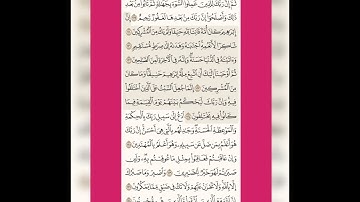 ثُمَّ إِنَّ رَبَّكَ لِلَّذِينَ عَمِلُوا۟ ٱلسُّوٓءَ بِجَهَٰلَةٍ ثُمَّ تَابُوا۟ مِنۢ بَعْدِ
ذَٰلِكَ وَأَصْلَحُوٓا۟ إِنَّ رَبَّكَ مِنۢ بَعْدِهَا لَغَفُورٌ رَّحِيمٌ إِنَّ
إِبْرَٰهِيمَ كَانَ أُمَّةً قَانِتًا لِّلَّهِ حَنِيفًا وَلَمْ يَكُ مِنَ ٱلْمُشْرِكِينَ
شَاكِرًا لِّأَنْعُمِهِ ٱجْتَبَىٰهُ وَهَدَىٰهُ إِلَىٰ صِرَٰطٍ مُّسْتَقِيمٍ
وَءَاتَيْنَٰهُ فِى ٱلدُّنْيَا حَسَنَةً وَإِنَّهُۥ فِى ٱلْءَاخِرَةِ لَمِنَ ٱلصَّٰلِحِينَ
ثُمَّ أَوْحَيْنَآ إِلَيْكَ أَنِ ٱتَّبِعْ مِلَّةَ إِبْرَٰهِيمَ حَنِيفًا وَمَا كَانَ
مِنَ ٱلْمُشْرِكِينَ إِنَّمَا جُعِلَ ٱلسَّبْتُ عَلَى ٱلَّذِينَ ٱخْتَلَفُوا۟
فِيهِ وَإِنَّ رَبَّكَ لَيَحْكُمُ بَيْنَهُمْ يَوْمَ ٱلْقِيَٰمَةِ فِيمَا
كَانُوا۟ فِيهِ يَخْتَلِفُونَ ٱدْعُ إِلَىٰ سَبِيلِ رَبِّكَ بِٱلْحِكْمَةِ
وَٱلْمَوْعِظَةِ ٱلْحَسَنَةِ وَجَٰدِلْهُم بِٱلَّتِى هِىَ أَحْسَنُ إِنَّ رَبَّكَ
هُوَ أَعْلَمُ بِمَن ضَلَّ عَن سَبِيلِهِۦ وَهُوَ أَعْلَمُ بِٱلْمُهْتَدِينَ
وَإِنْ عَاقَبْتُمْ فَعَاقِبُوا۟ بِمِثْلِ مَا عُوقِبْتُم بِهِۦ وَلَئِن
صَبَرْتُمْ لَهُوَ خَيْرٌ لِّلصَّٰبِرِينَ وَٱصْبِرْ وَمَا صَبْرُكَ
إِلَّا بِٱللَّهِ وَلَا تَحْزَنْ عَلَيْهِمْ وَلَا تَكُ فِى ضَيْقٍ مِّمَّا يَمْكُرُونَ
إِنَّ ٱللَّهَ مَعَ ٱلَّذِينَ ٱتَّقَوا۟ وَّٱلَّذِينَ هُم مُّحْسِنُونَ